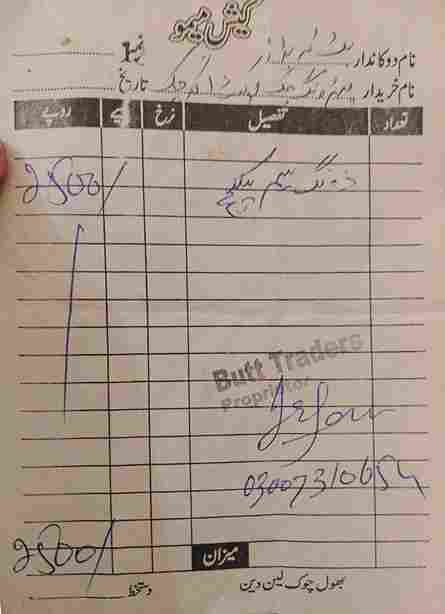 کیش میمو
نام دوکاندار بٹ ٹریڈرز نمبر 1
نام خریدار تاریخ
تعداد تفصیل نرخ پیسے روپے
2500/
Butt Traders
Proprietor
03007310654
میزان 2500/
بھول چوک لین دین دستخط